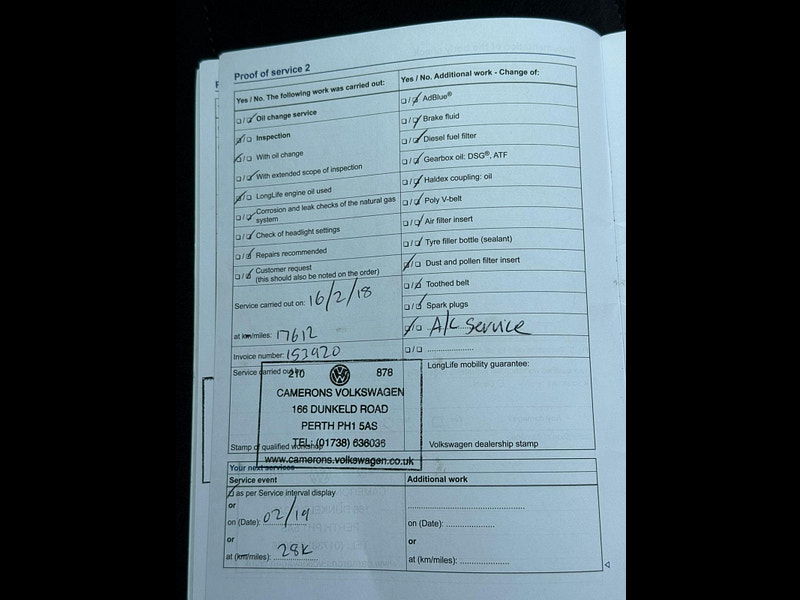 Proof of service 2
Yes / No. The following work was carried out:
Oil change service
Inspection
With oil change
With extended scope of inspection
LongLife engine oil used
Corrosion and leak checks of the natural gas
system
Check of headlight settings
Repairs recommended
Customer request
(this should also be noted on the order)
Service carried out on: 16/2/18
at km/miles: 17612
Invoice number: 153920
Service carried out by:
210 878
CAMERONS VOLKSWAGEN
166 DUNKELD ROAD
PERTH PH1 5AS
TEL: (01738) 636035
Stamp of qualified workshop
www.camerons.volkswagen.co.uk
Yes / No. Additional work - Change of:
AdBlue®
Brake fluid
Diesel fuel filter
Gearbox oil: DSG®, ATF
Haldex coupling: oil
Poly V-belt
Air filter insert
Tyre filler bottle (sealant)
Dust and pollen filter insert
Toothed belt
Spark plugs
A/C Service
LongLife mobility guarantee:
Volkswagen dealership stamp
Your next services
Service event
as per Service interval display
or
on (Date): 02/19
or
at (km/miles): 28K
Additional work
on (Date):
or
at (km/miles):